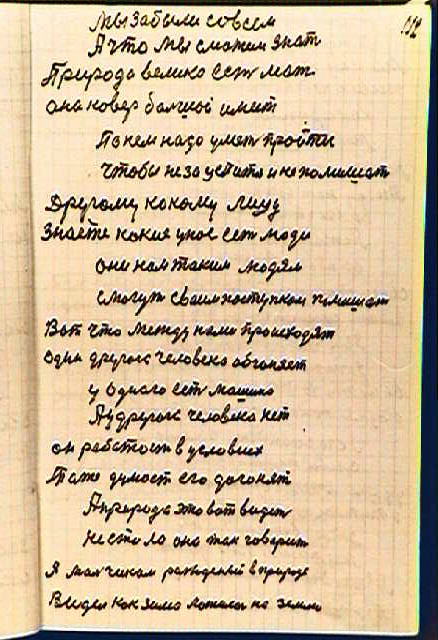 Мы забыли совсем
А что мы сможем знат
Природа велико ест мат
она ковер балшой имит
По нем надо умет пройти
Чтобы не за цепит и не помишат
Другому кокому лицу
Знаете какие у нос ест люди
они нам таким людям
смогут сваим поступком помишат
Вот что между нами происходят
один другога человека обгоняет
у одного ест машина
А у другога человека нет
он работает в условиях
Таже думает его догонят
А природа это вот видет
не стола она так говорит
Я малчиком ражденый в природе
Видел как зима ложилас на землю